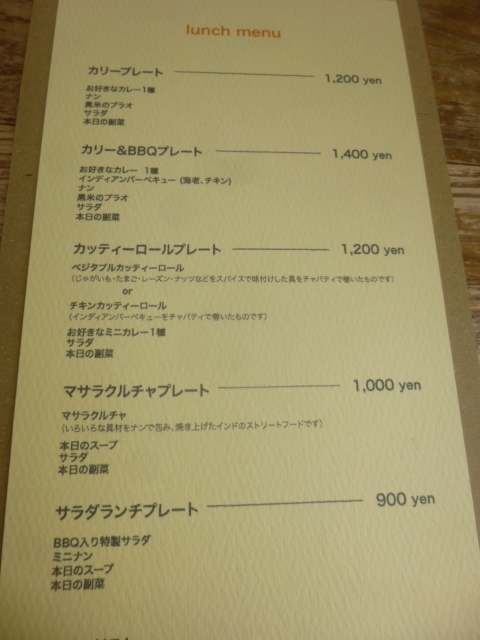 lunch menu
カリープレート 1,200 yen
お好きなカレー1種
ナン
黒米のプラオ
サラダ
本日の副菜
カリー&BBQプレート 1,400 yen
お好きなカレー 1種
インディアンバーベキュー (海老、チキン)
ナン
黒米のプラオ
サラダ
本日の副菜
カッティーロールプレート 1,200 yen
ベジタブルカッティーロール
(じゃがいも・たまご・レーズン・ナッツなどをスパイスで味付けした具をチャパティで巻いたものです)
or
チキンカッティーロール
(インディアンバーベキューをチャパティで巻いたものです)
お好きなミニカレー1種
サラダ
本日の副菜
マサラクルチャプレート 1,000 yen
マサラクルチャ
(いろいろな具材をナンで包み、焼き上げたインドのストリートフードです)
本日のスープ
サラダ
本日の副菜
サラダランチプレート 900 yen
BBQ入り特製サラダ
ミニナン
本日のスープ
本日の副菜